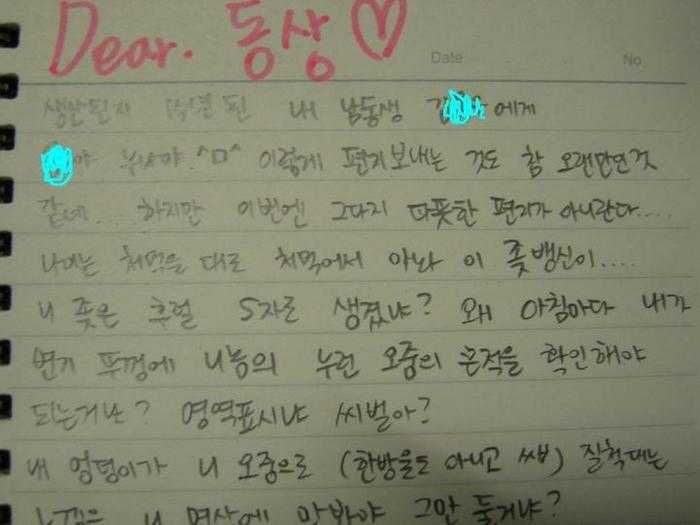 Dear. 동상♡
Date No.
생일된지 내 남동생 김 에게
야 누나야.^ㅁ^ 이렇게 편지보내는 것도 참 오랜만인것
같네... 하지만 이번엔 그다지 따뜻한 편지가 아니란다....
나이는 처먹을 대로 처먹어서 아놔 이 좆뱅신이....
니 좆은 후덜 S자로 생겼냐? 왜 아침마다 내가
변기 뚜껑에 니놈의 누런 오줌의 흔적을 확인해야
되는거냐? 영역표시냐 씨벌아?
내 엉덩이가 니 오줌으로 (한방울도 아니고 쓰ㅂ) 질척대는
느낌은 니 면상에 맛봐야 그만 둘거냐?